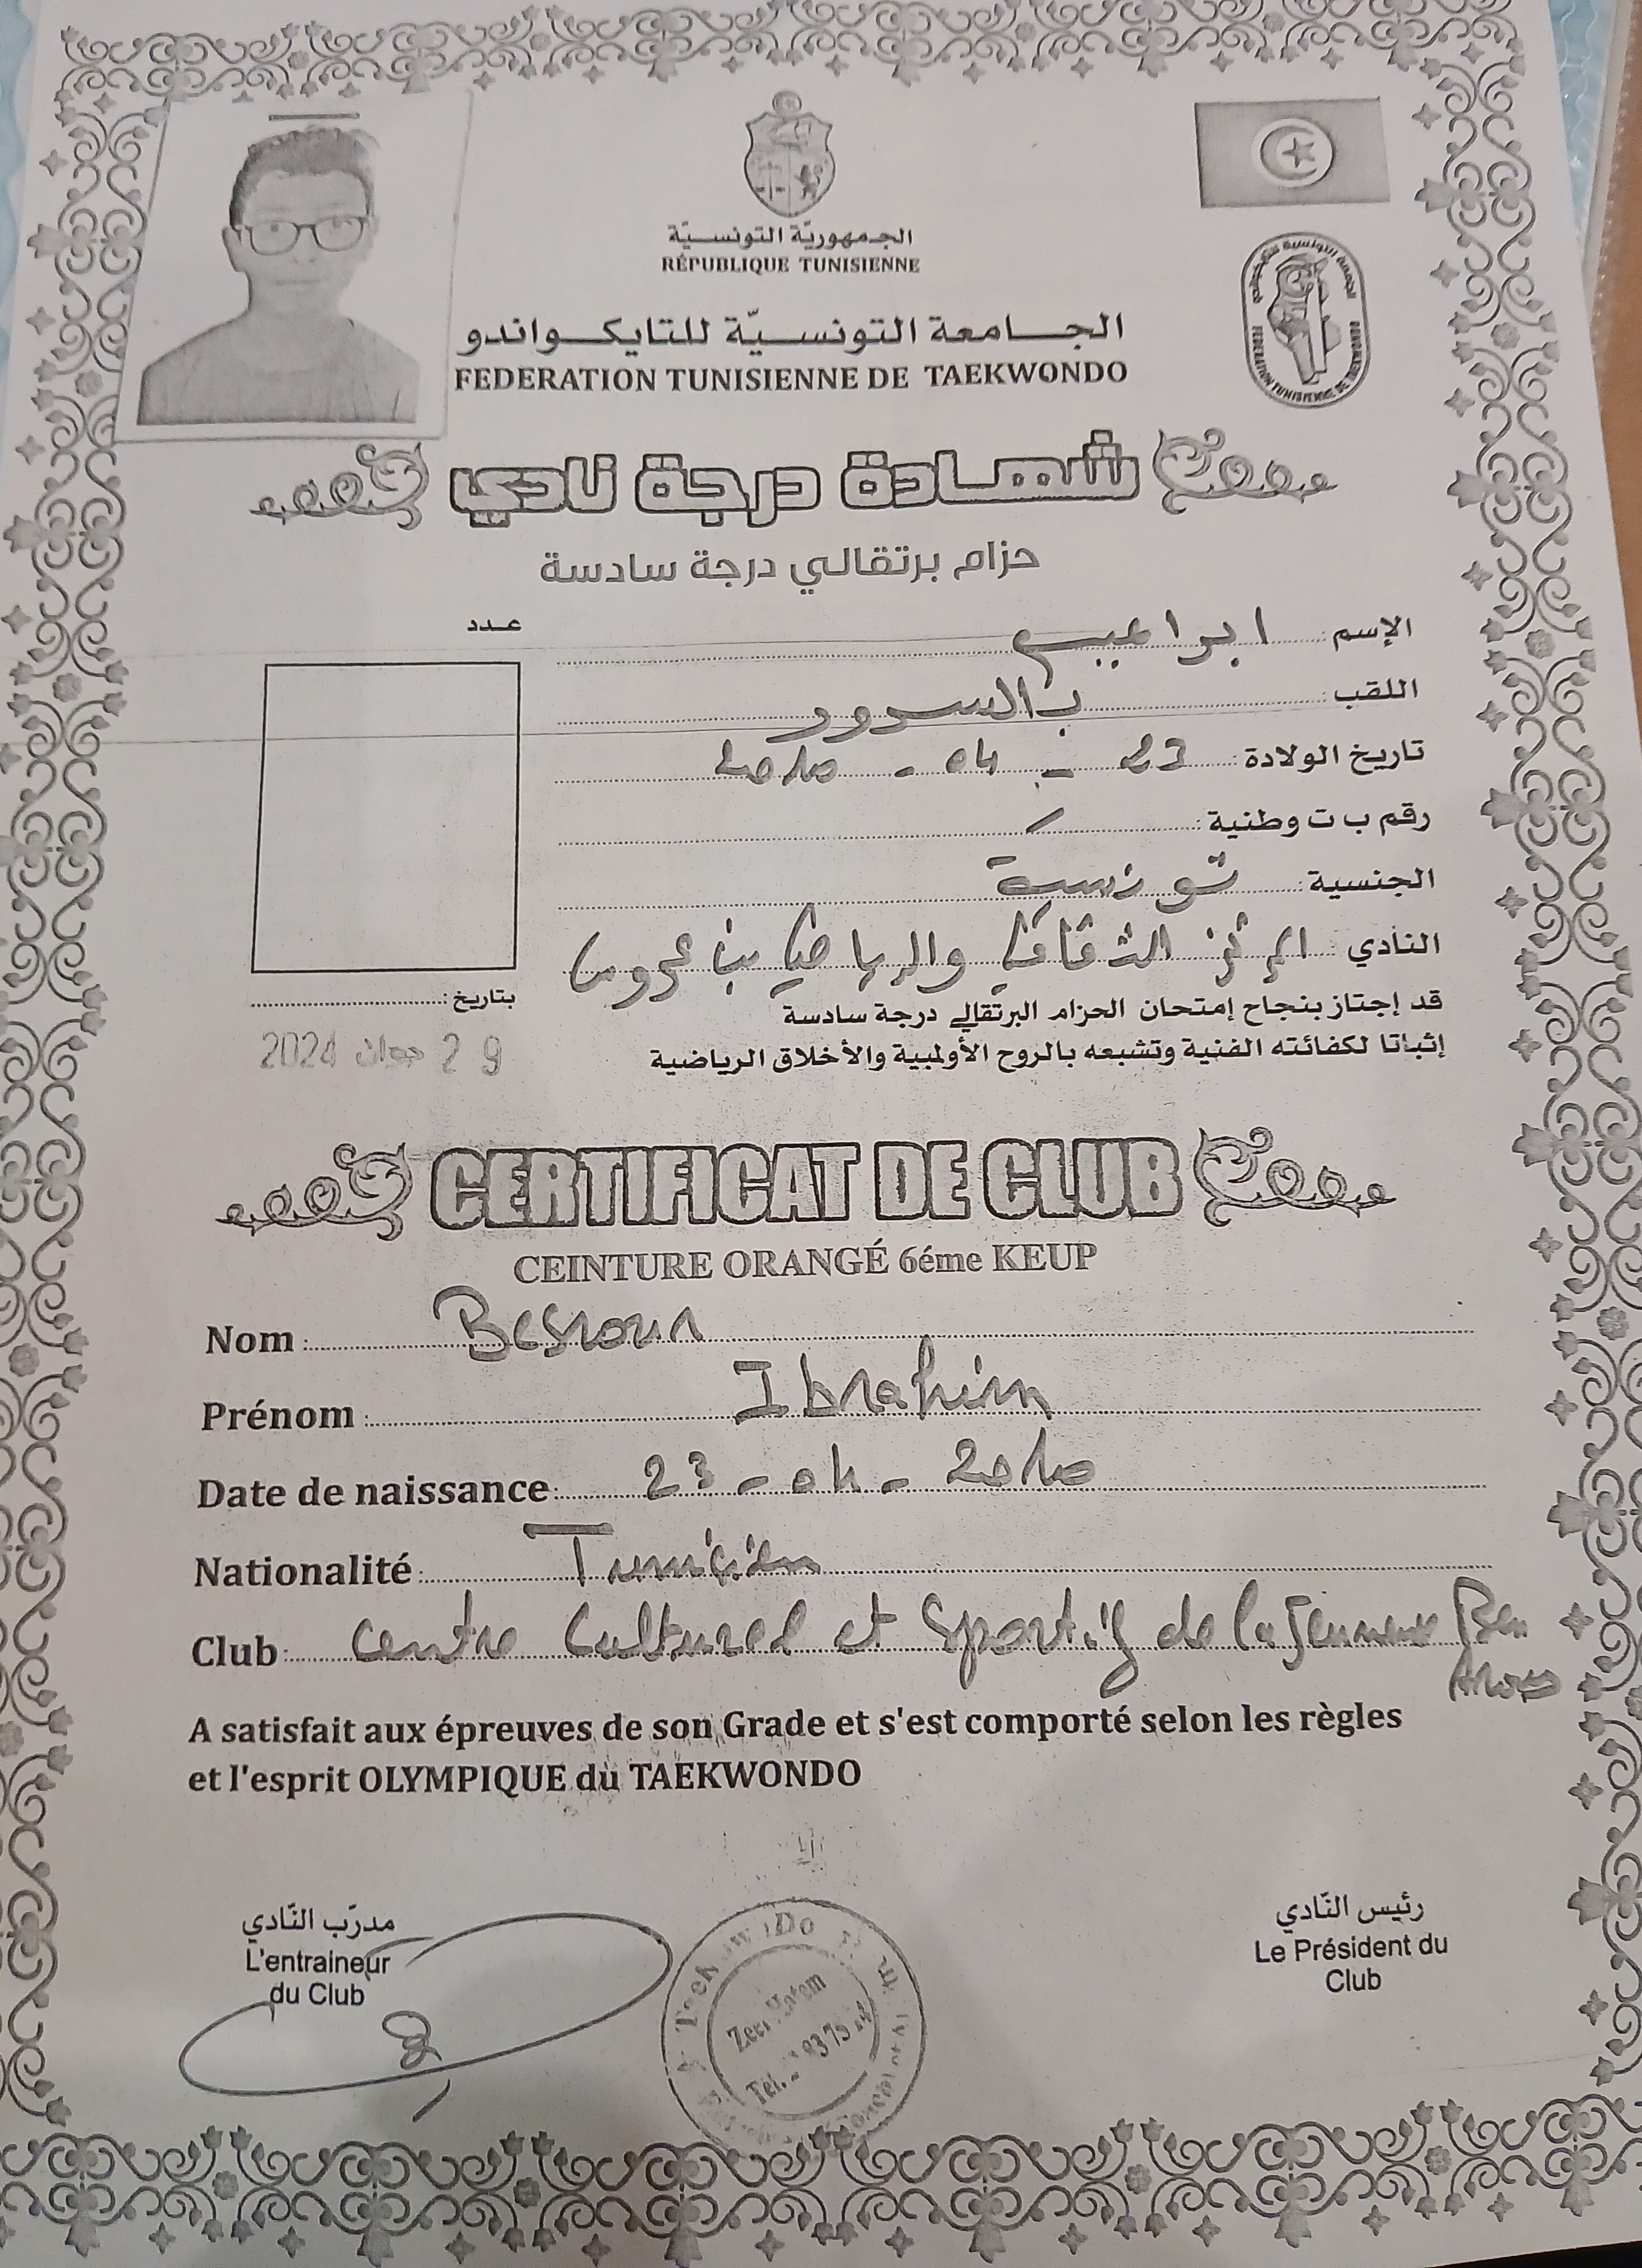 الجمهوريّة التونسيّة
RÉPUBLIQUE TUNISIENNE
الجامعة التونسيّة للتايكواندو
FEDERATION TUNISIENNE DE TAEKWONDO
الجامعة التونسية للتايكواندو
FEDERATION TUNISIENNE DE TAEKWONDO
شهادة درجة نادي
حزام برتقالي درجة سادسة
عدد
الإسم: ابراهيم
اللقب: بالسرور
تاريخ الولادة: 23 - 04 - 2010
رقم ب ت وطنية:
الجنسية: تونسية
النادي: المركز الثقافي والرياضي بن عروس
قد إجتاز بنجاح إمتحان الحزام البرتقالي درجة سادسة
إثباتا لكفائته الفنية وتشبعه بالروح الأولمبية والأخلاق الرياضية
بتاريخ:
29 جوان 2024
CERTIFICAT DE CLUB
CEINTURE ORANGÉ 6éme KEUP
Nom: Besrour
Prénom: Ibrahim
Date de naissance: 23 - 04 - 2010
Nationalité: Tunisien
Club: Centre Culturel et Sportif de la Jeunesse Ben
Arous
A satisfait aux épreuves de son Grade et s'est comporté selon les règles
et l'esprit OLYMPIQUE du TAEKWONDO
مدرّب النّادي
L'entraineur
du Club
رئيس النّادي
Le Président du
Club